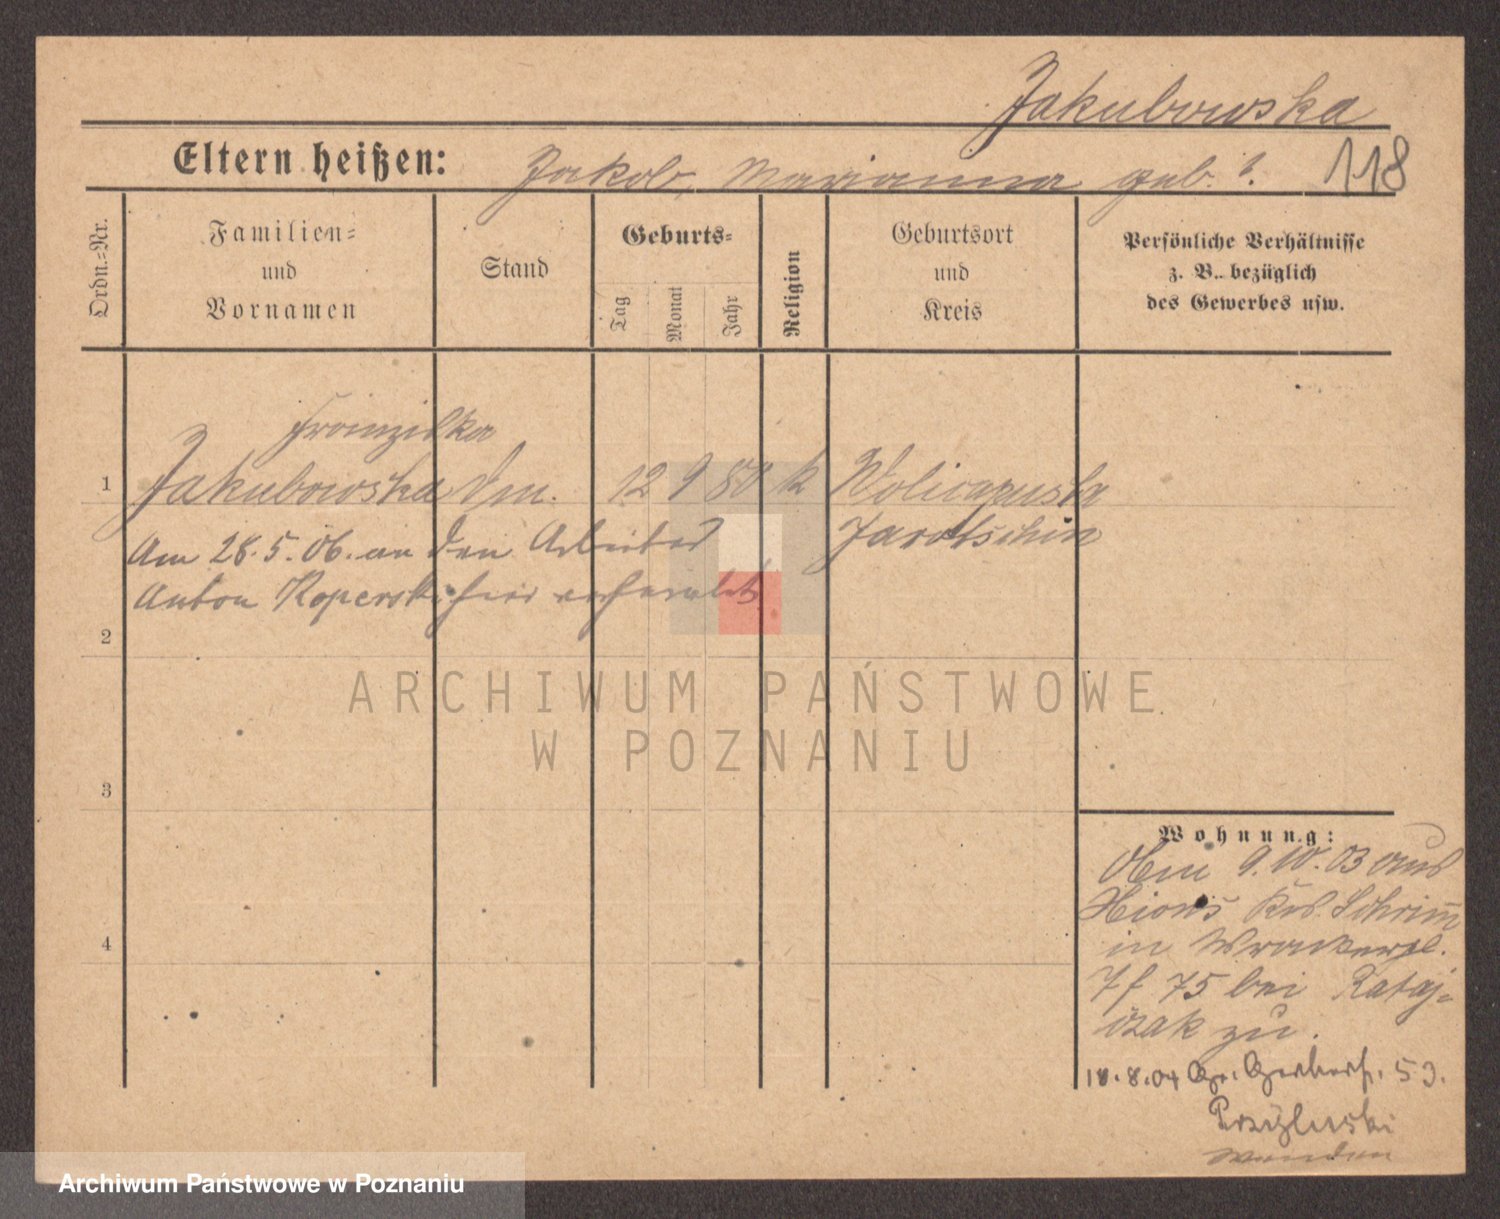 Jakubowska
Eltern heißen: Jakob, Marianna geb. ?. 118
Ordn.-Nr.
Familien- und Vornamen
Stand
Geburts-
Tag
Monat
Jahr
Religion
Geburtsort und Kreis
Persönliche Verhältnisse
z. B. bezüglich
des Gewerbes usw.
Franziska
1 Jakubowska 12 9 80 k Wolicapusta
Jarotschin
Am 28.5.06. an den Arbeiter
Anton Koperski hier verheiratet
2
3
4
Wohnung:
9.10.03 aus
Xions Krs. Schrim
in Wronkerpl.
75 bei Rataj-
czak zu.
18.8.04 Gr. Gerberstr. 53.
Przyluski
wenden
ARCHIWUM PAŃSTWOWE
W POZNANIU
Archiwum Państwowe w Poznaniu